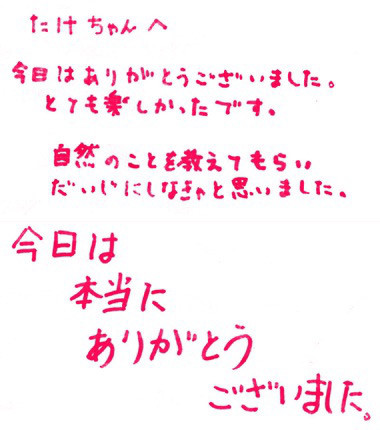 たけちゃんへ
今日はありがとうございました。
とても楽しかったです。
自然のことを教えてもらい
だいじにしなきゃと思いました。
今日は
本当に
ありがとう
ございました。